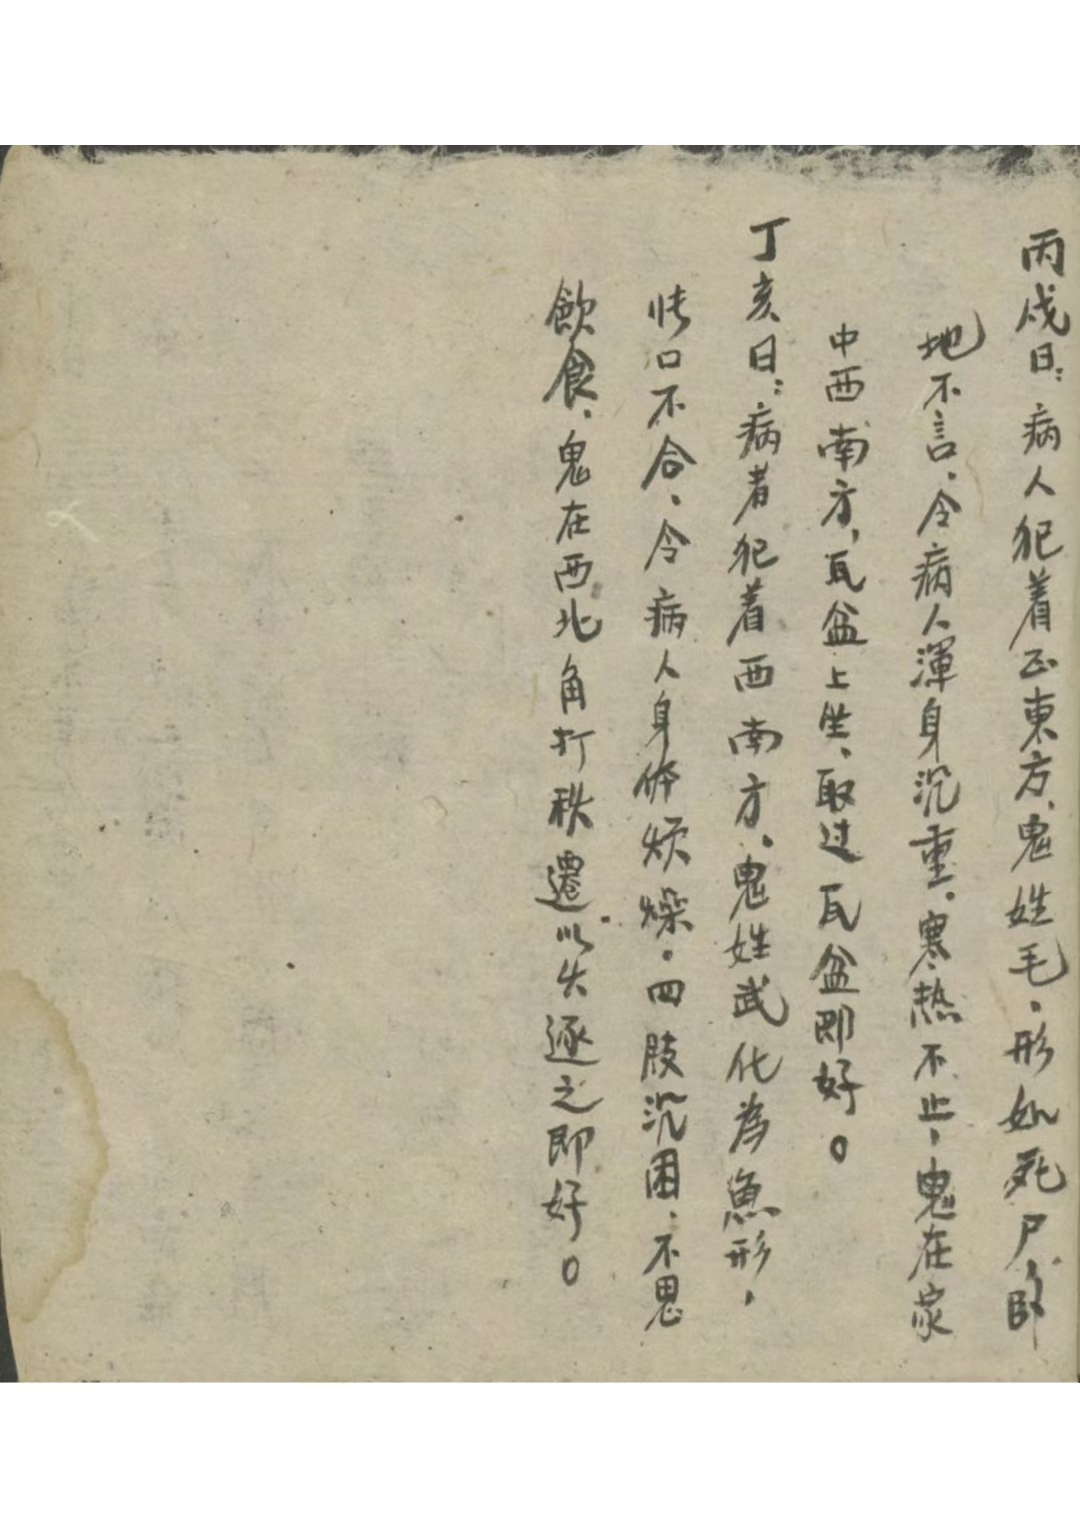 丙戌日：病人犯着正東方、鬼姓毛。形如死尸、卧
地不言、令病人渾身沉重。寒热不止，鬼在家
中西南方，瓦盆上坐、取过瓦盆即好。
丁亥日：病者犯着西南方、鬼姓武化為魚形，
口不合、令病人身体烦燥。四肢沉困、不思
飲食、鬼在西北角打秋遷以失逐之即好。